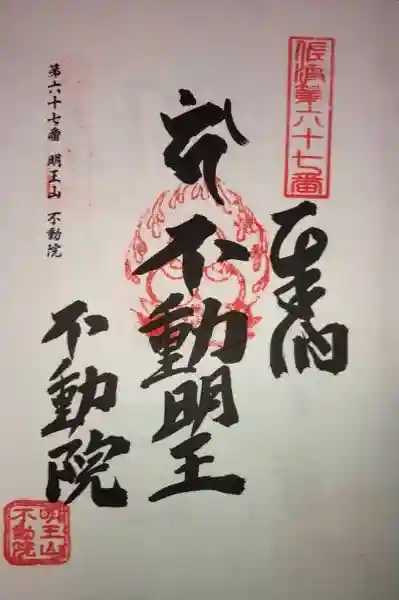 佐波第六十七番
奉納
不動明王
不動院
第六十七番 明王山 不動院
明王山
不動院